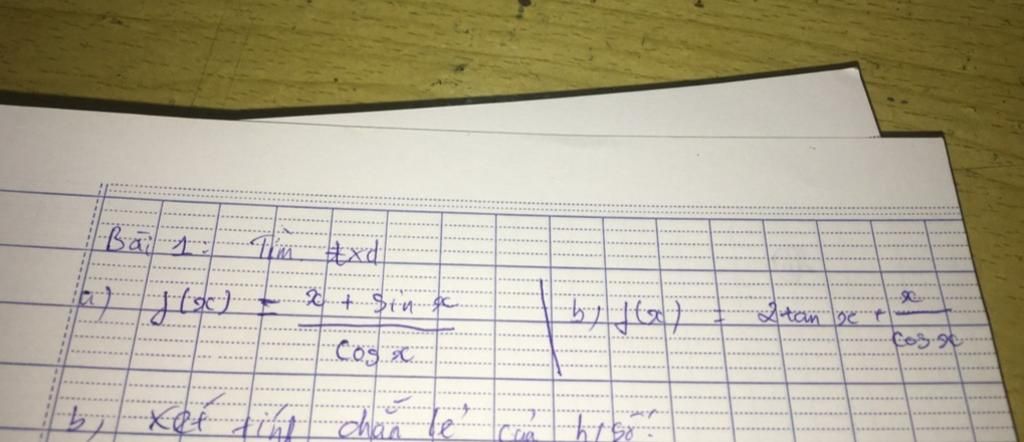 Bài 1: Tìm txđ
a) f(x) = x + sin x / cos x | b, f(x) = 2 tan x + x / cos x
b, Xét tính chẵn lẻ của h/số: